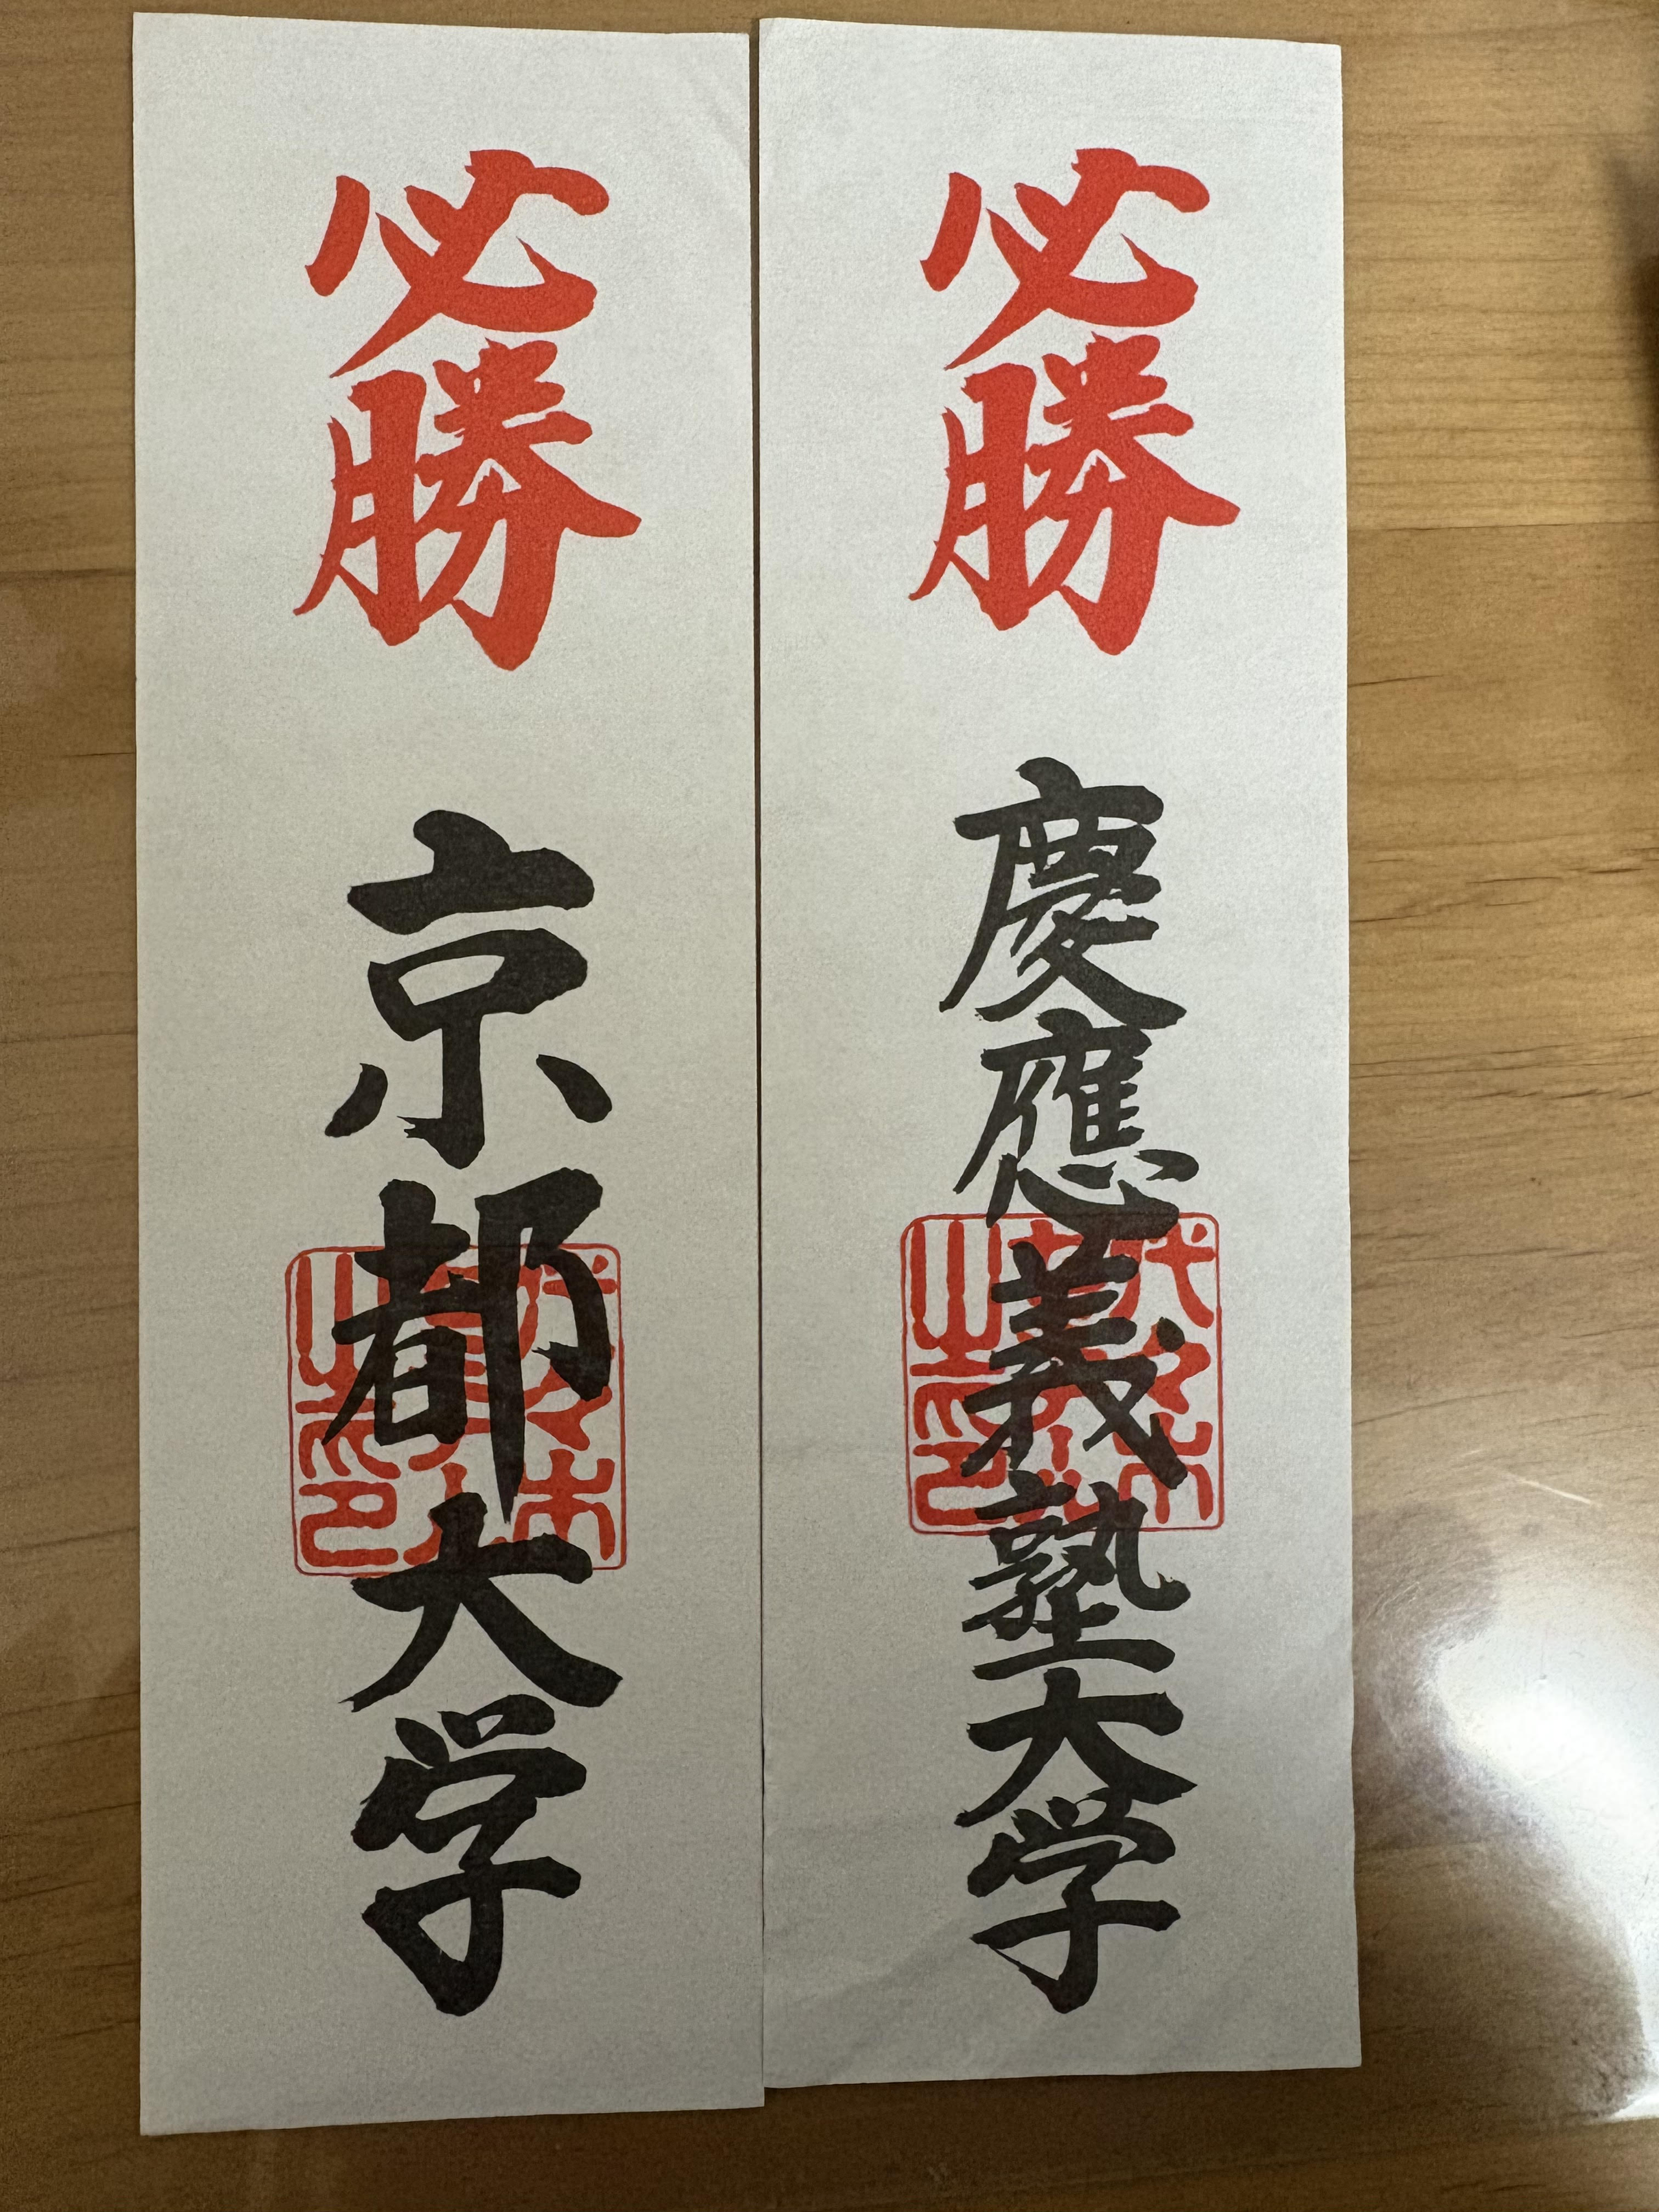 必勝
慶應義塾大学
必勝
京都大学